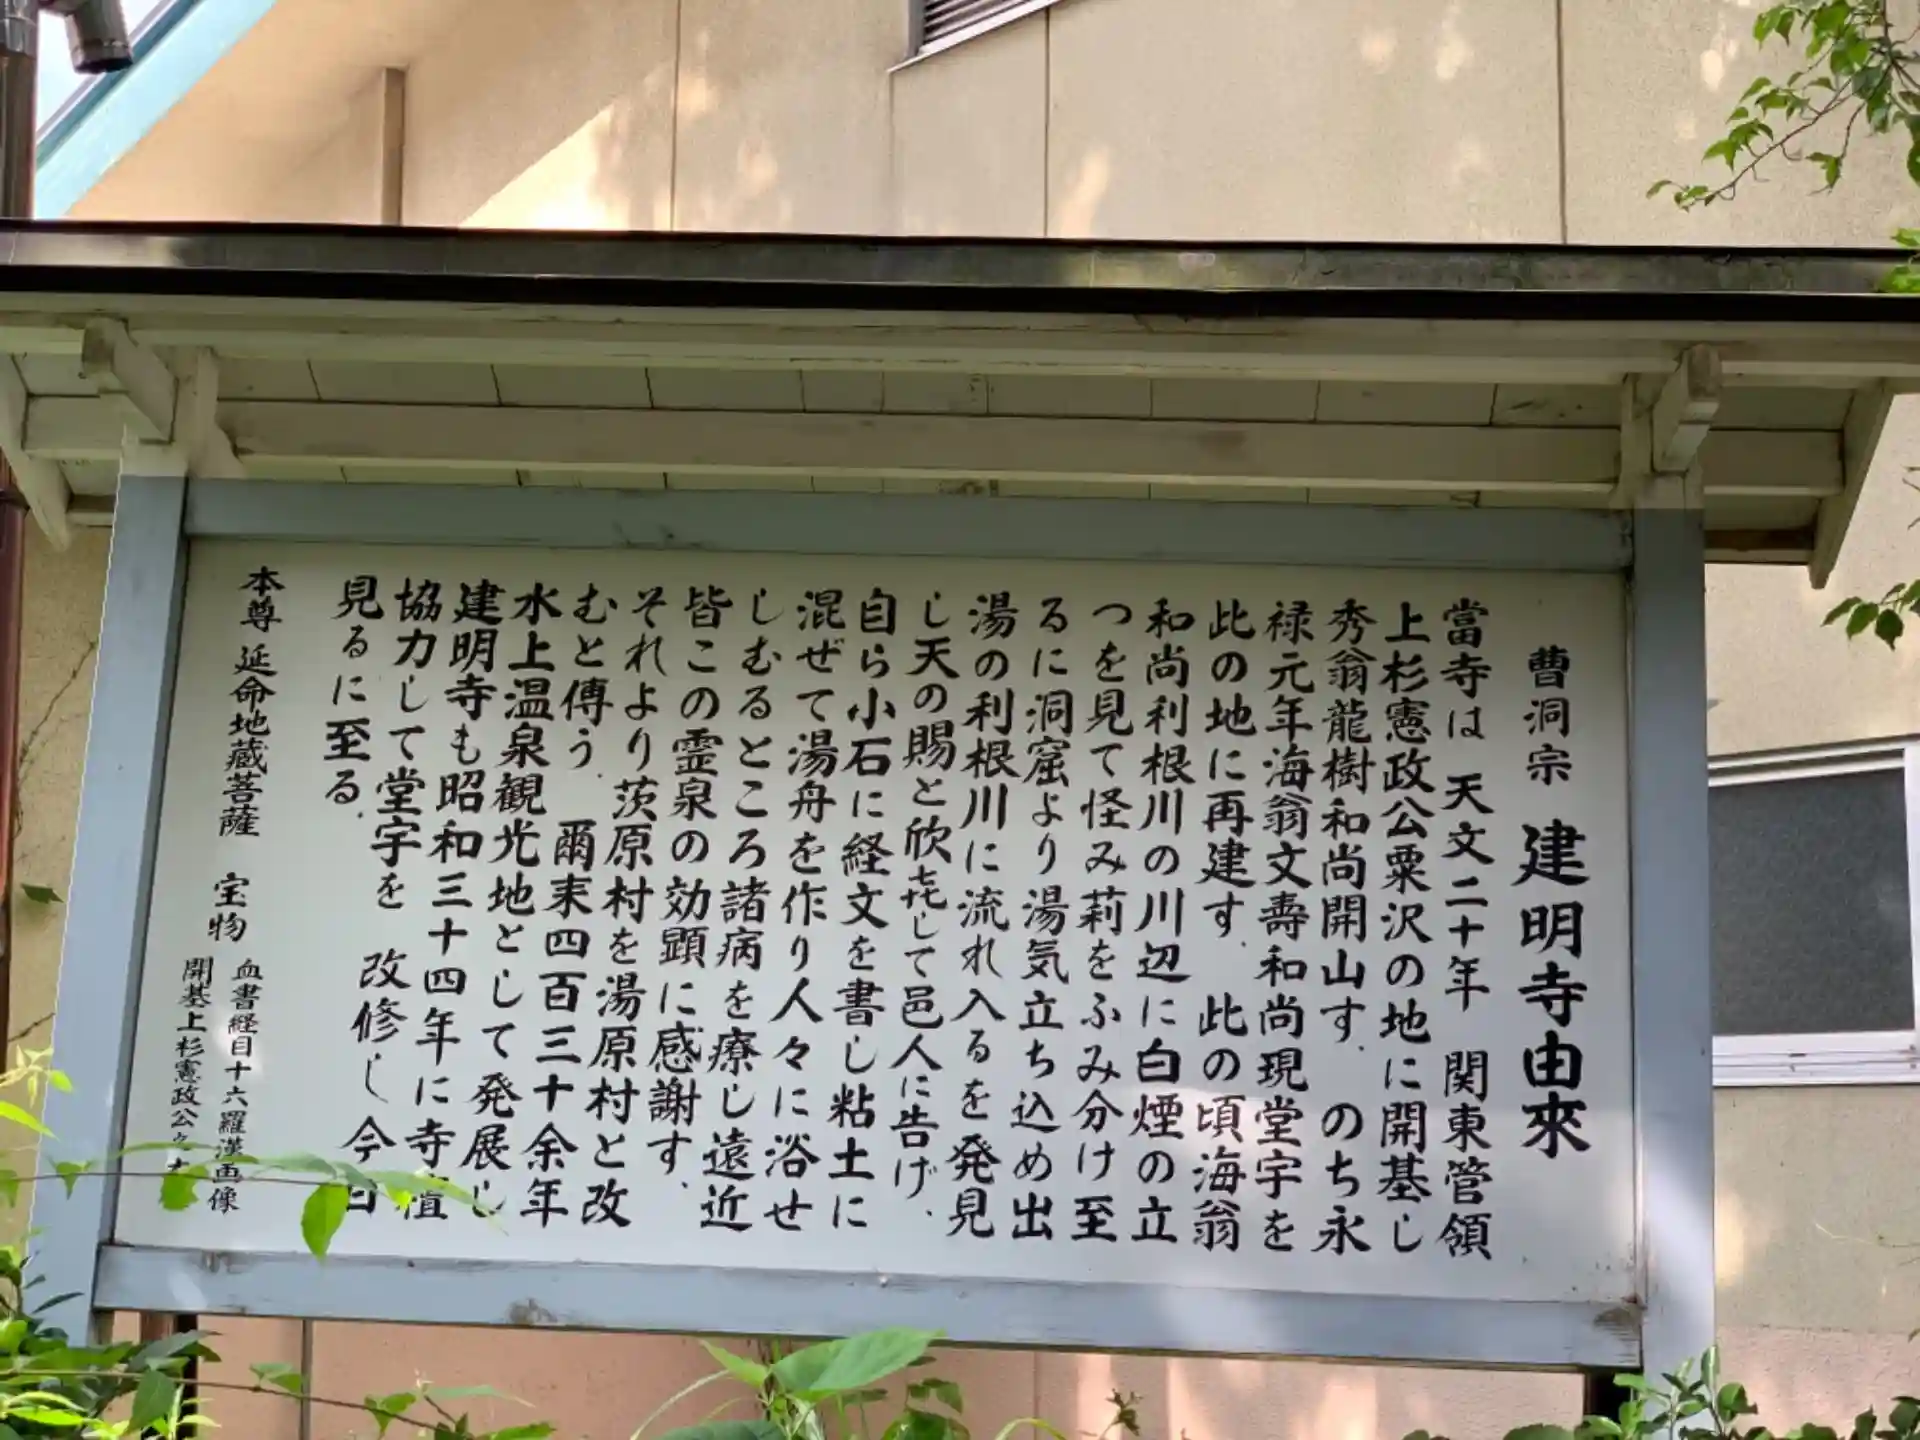 曹洞宗 建明寺由來
當寺は 天文二十年 関東管領
上杉憲政公粟沢の地に開基し
秀翁龍樹和尚開山す. のち永
禄元年海翁文壽和尚現堂宇を
此の地に再建す. 此の頃海翁
和尚利根川の川辺に白煙の立
つを見て怪み莉をふみ分け至
るに洞窟より湯気立ち込め出
湯の利根川に流れ入るを発見
し天の賜と欣㐂して邑人に告げ.
自ら小石に経文を書し粘土に
混ぜて湯舟を作り人々に浴せ
しむるところ諸病を療し遠近
皆この霊泉の効顕に感謝す.
それより茨原村を湯原村と改
むと傳う. 爾来四百三十余年
水上温泉観光地として発展し
建明寺も昭和三十四年に寺檀
協力して堂宇を 改修し今日
見るに至る.
本尊 延命地蔵菩薩 宝物 血書経目十六羅漢画像
開基上杉憲政公